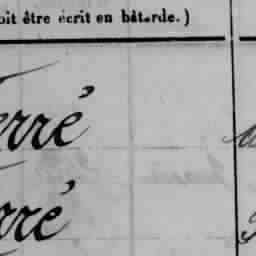 oit être écrit en bâtarde.)
erré
rré